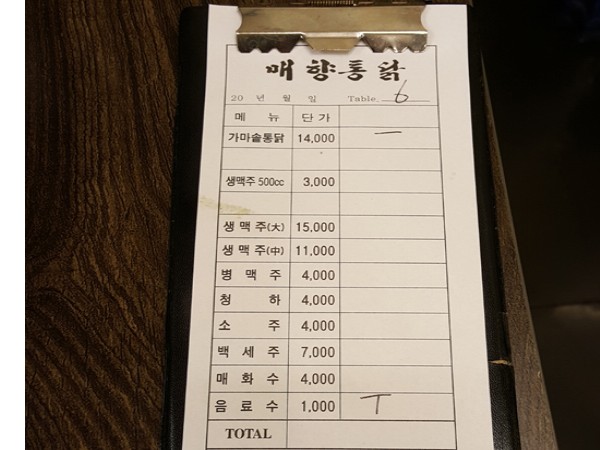 매향통닭
20 년 월 일 Table. 6
메 뉴 단 가
가마솥통닭 14,000 一
생맥주 500cc 3,000
생 맥 주(大) 15,000
생 맥 주(中) 11,000
병 맥 주 4,000
청 하 4,000
소 주 4,000
백 세 주 7,000
매 화 수 4,000
음 료 수 1,000 T
TOTAL